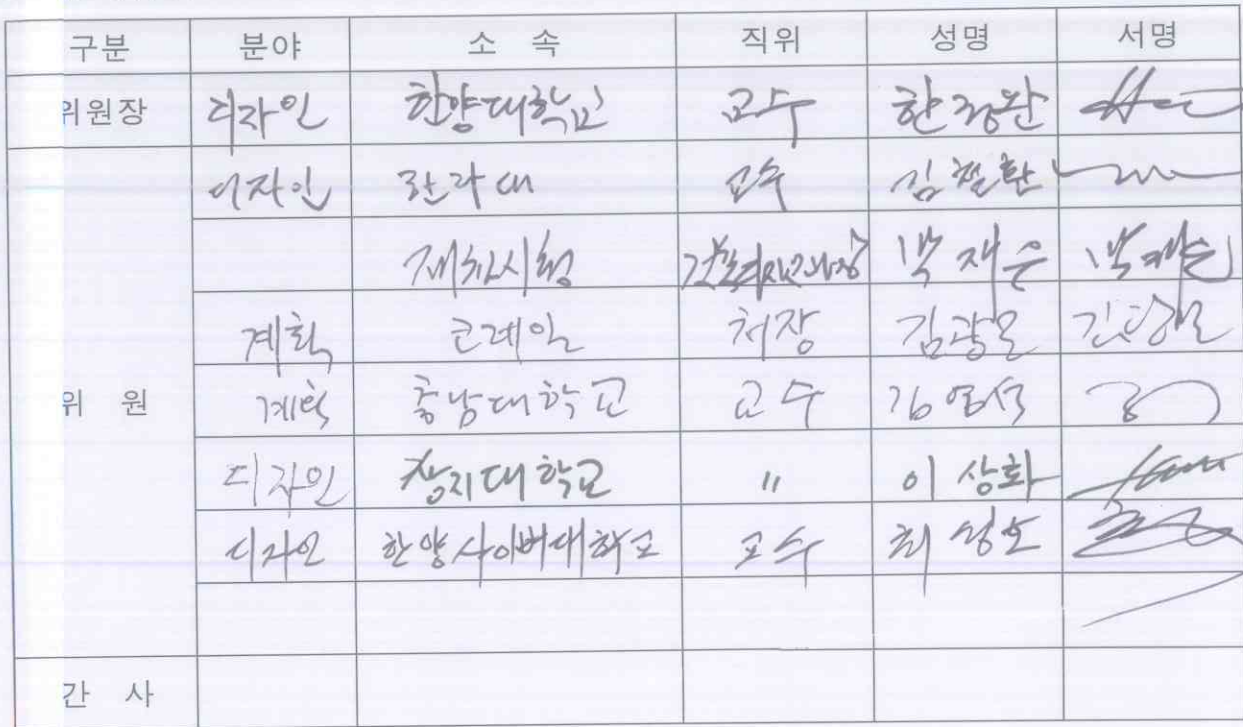 구분 분야 소 속 직위 성명 서명
위원장 디자인 한양대학교 교수 한정완
디자인 한라대 교수 김철환
제천시청 박재은 박재은
계획 코레일 처장 김광모 김광모
위 원 계획 충남대학교 교수 김영석
디자인 대학교 〃 이상화
디자인 한양사이버대학교 교수 최성호
간 사